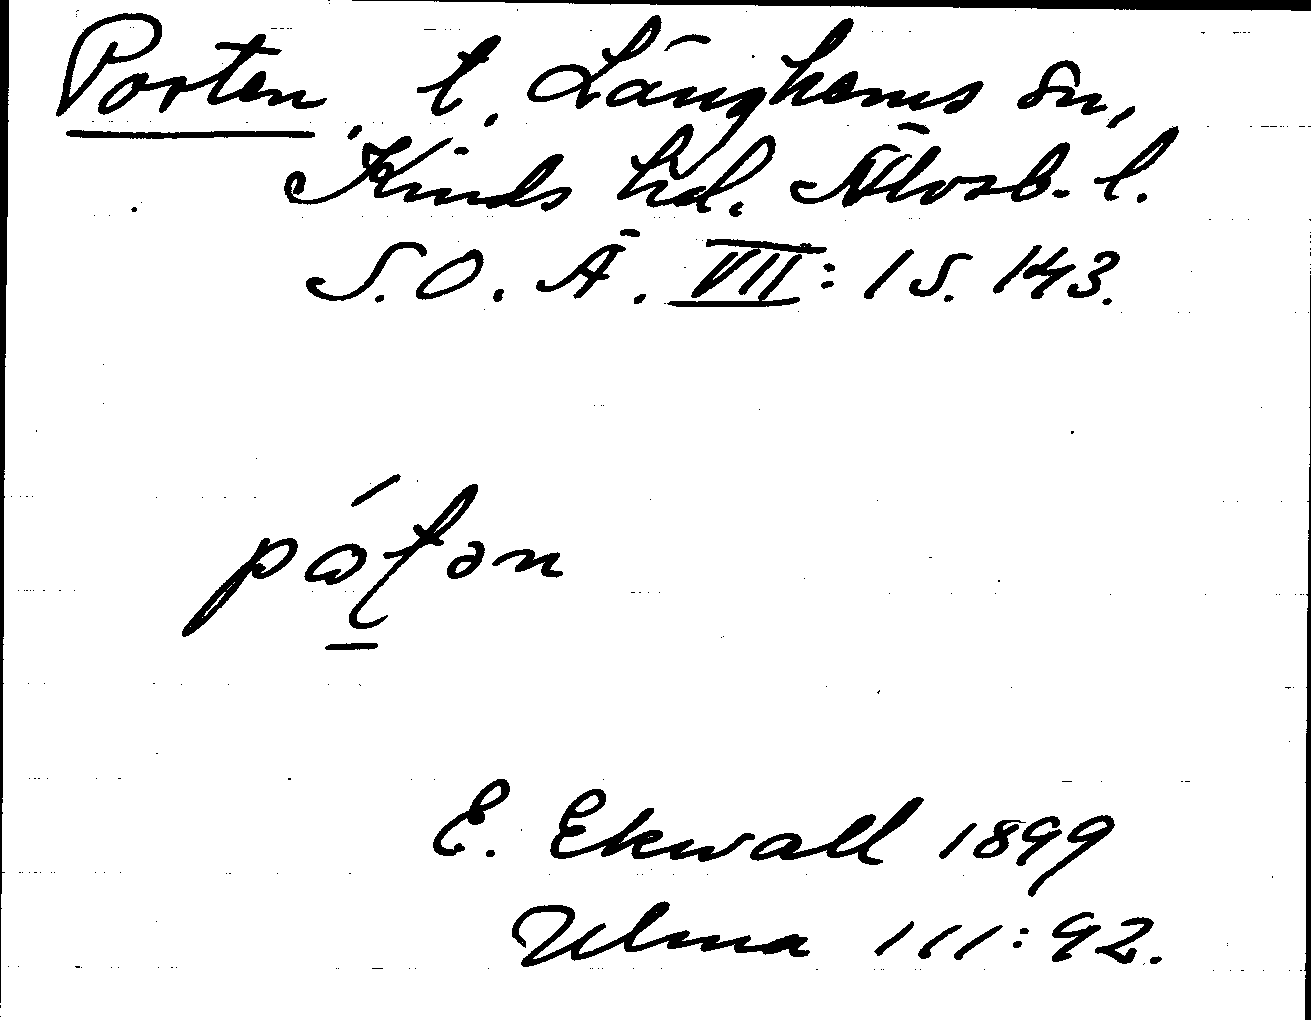 Porten, t. Länghems sn,
Kinds hd. Älvsb. l.
S.O.Ä. VII:1 S. 143.
pót̠ən
E. Ekwall 1899
Ulma 111:92.